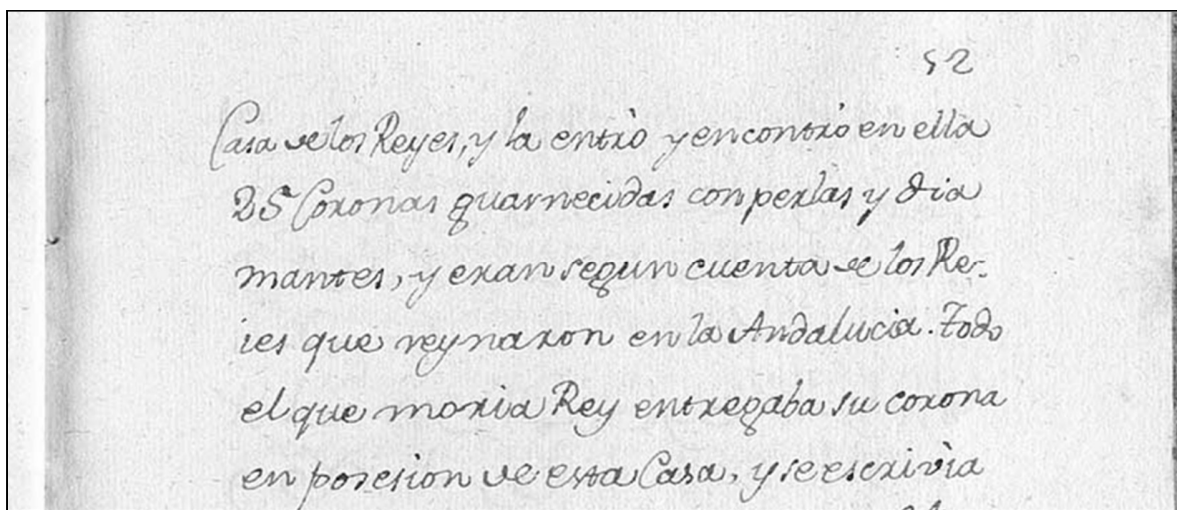 52
Casa de los Reyes, y la entrò y encontrò en ella
25 Coronas guarnecidas con perlas y dia
mantes, y eran segun cuenta de los Re-
ies que reynaron en la Andalucia. Todo
el que moria Rey entregaba su corona
en posesion de esta Casa, y se escrivìa